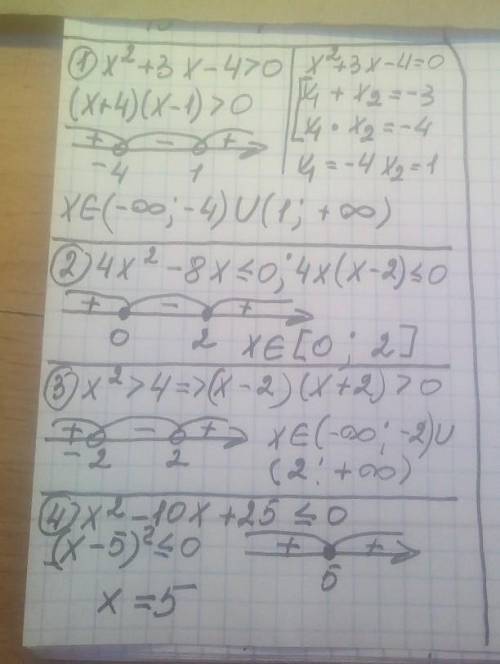 ① x² + 3x - 4 > 0
(x+4)(x-1) > 0
+ - +
-4 1
x² + 3x - 4 = 0
x₁ + x₂ = -3
x₁ • x₂ = -4
x₁ = -4 x₂ = 1
x ∈ (-∞; -4) ∪ (1; +∞)
② 4x² - 8x ≤ 0; 4x(x-2) ≤ 0
+ - +
0 2
x ∈ [0; 2]
③ x² > 4 => (x-2)(x+2) > 0
+ - +
-2 2
x ∈ (-∞; -2) ∪
(2; +∞)
④ x² - 10x + 25 ≤ 0
(x-5)² ≤ 0
+ +
5
x = 5